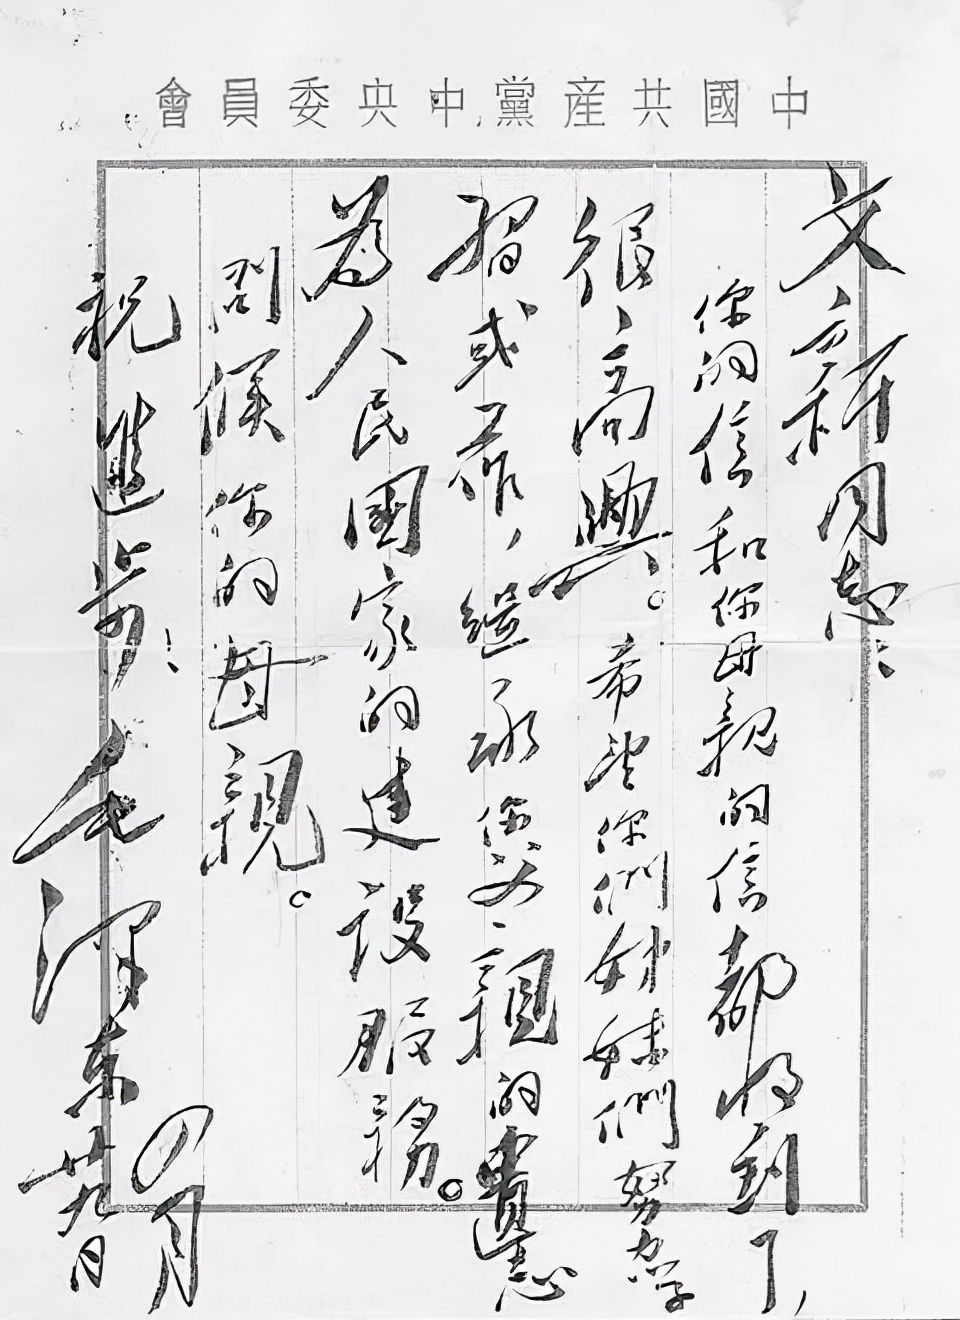 中國共産黨中央委員會
文新同志：
你的信和你母親的信都收到了，
很高興。希望你們姊妹們努力學
習或工作，繼承你父親的遺志
為人民國家的建設服務。
問候你的母親。
祝進步！毛澤東
四月
廿九日